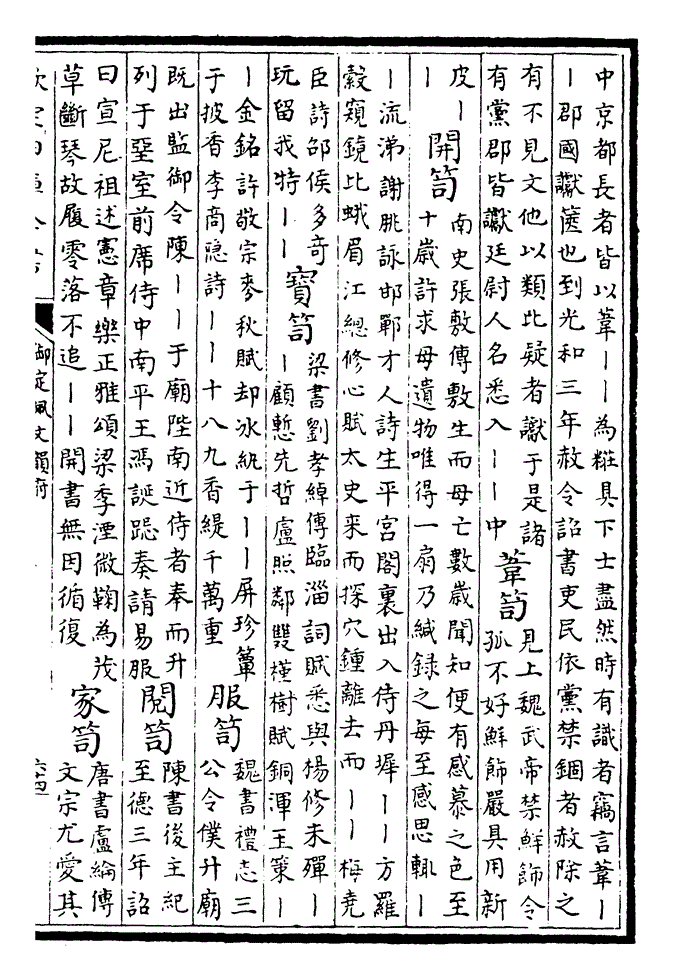 中京都長者皆以葦丨丨為糚具下士盡然時有識者竊言葦丨
丨郡國讞篋也到光和三年赦令詔書吏民依黨禁錮者赦除之
有不見文他以類比疑者讞于是諸
有黨郡皆讞廷尉人名悉入丨丨中
葦笥
見上魏武帝禁鮮飾令
孤不好鮮飾嚴具用新
皮丨
丨
開笥
南史張敷傳敷生而母亡數歲聞知便有感慕之色至
十歲許求母遺物唯得一扇乃緘録之每至感思輒丨
丨流涕謝朓詠邯鄲才人詩生平宫閣裏出入侍丹墀丨丨方羅
縠窺鏡比蛾眉江總修心賦太史来而探穴鍾離去而丨丨梅堯
臣詩邵侯多奇
玩留我特丨丨
寳笥
梁書劉孝綽傳臨淄詞賦悉與楊修未殫丨
丨顧慙先哲盧照鄰雙槿樹賦銅渾玉策丨
丨金銘許敬宗麥秋賦却冰紈于丨丨屏珍簟
于披香李商隐詩丨丨十八九香緹千萬重
服笥
魏書禮志三
公令僕升廟
既出監御令陳丨丨于廟陛南近侍者奉而升
列于堊室前席侍中南平王馮誕跽奏請易服
閲笥
陳書後主紀
至德三年詔
曰宣尼祖述憲章樂正雅頌梁季湮微鞠為茂
草斷琴故履零落不追丨丨開書無因循復
家笥
唐書盧綸傳
文宗尤愛其
欽定四庫全書
御定佩文韻府